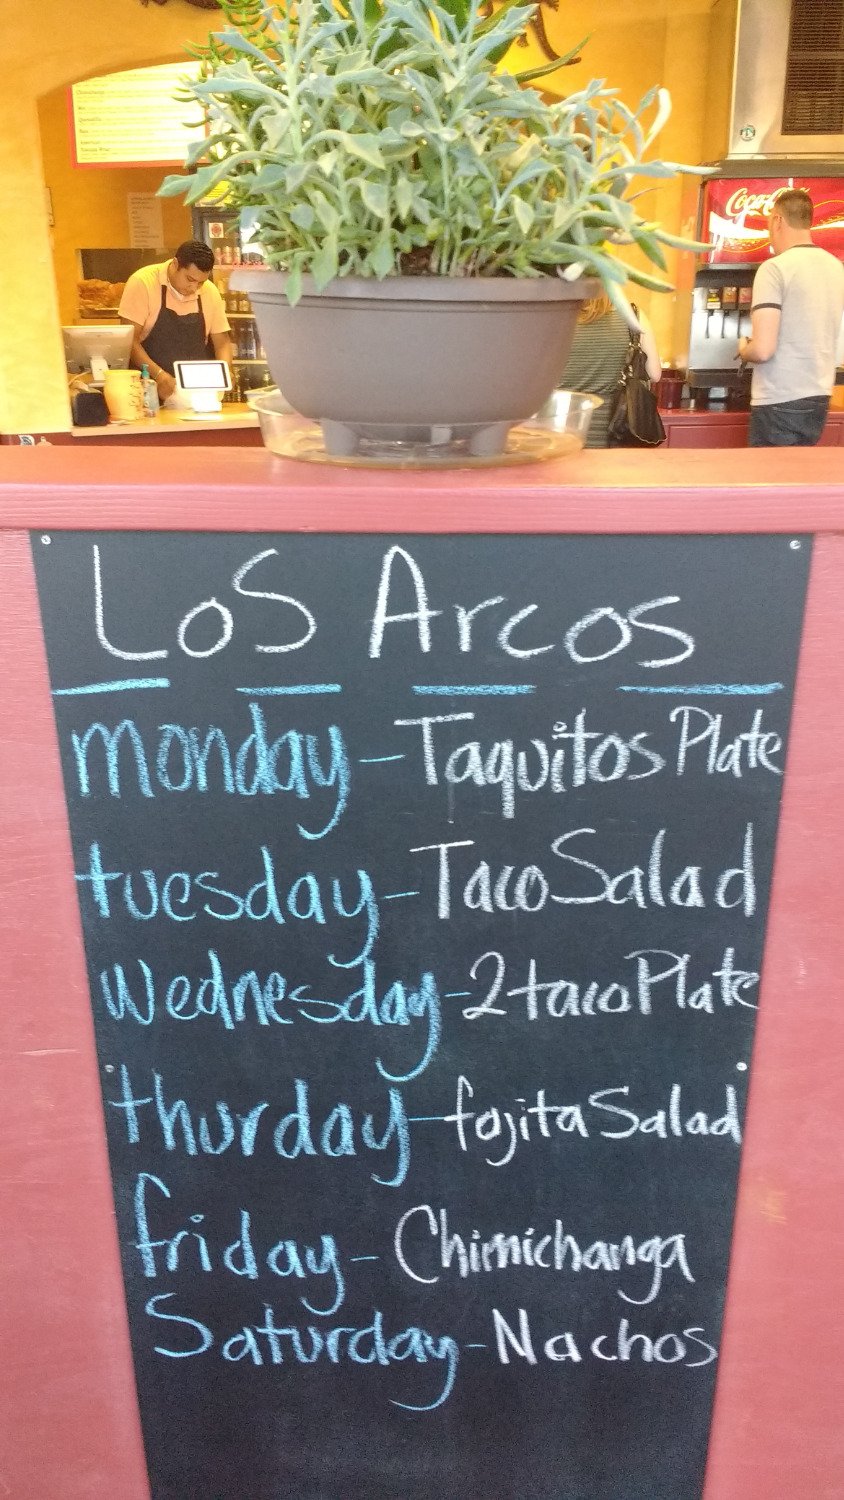 Coca-Cola
Los Arcos
monday - Taquitos Plate
tuesday - Taco Salad
Wednesday - 2 taco Plate
thurday - fojita Salad
friday - Chimichanga
Saturday - Nachos